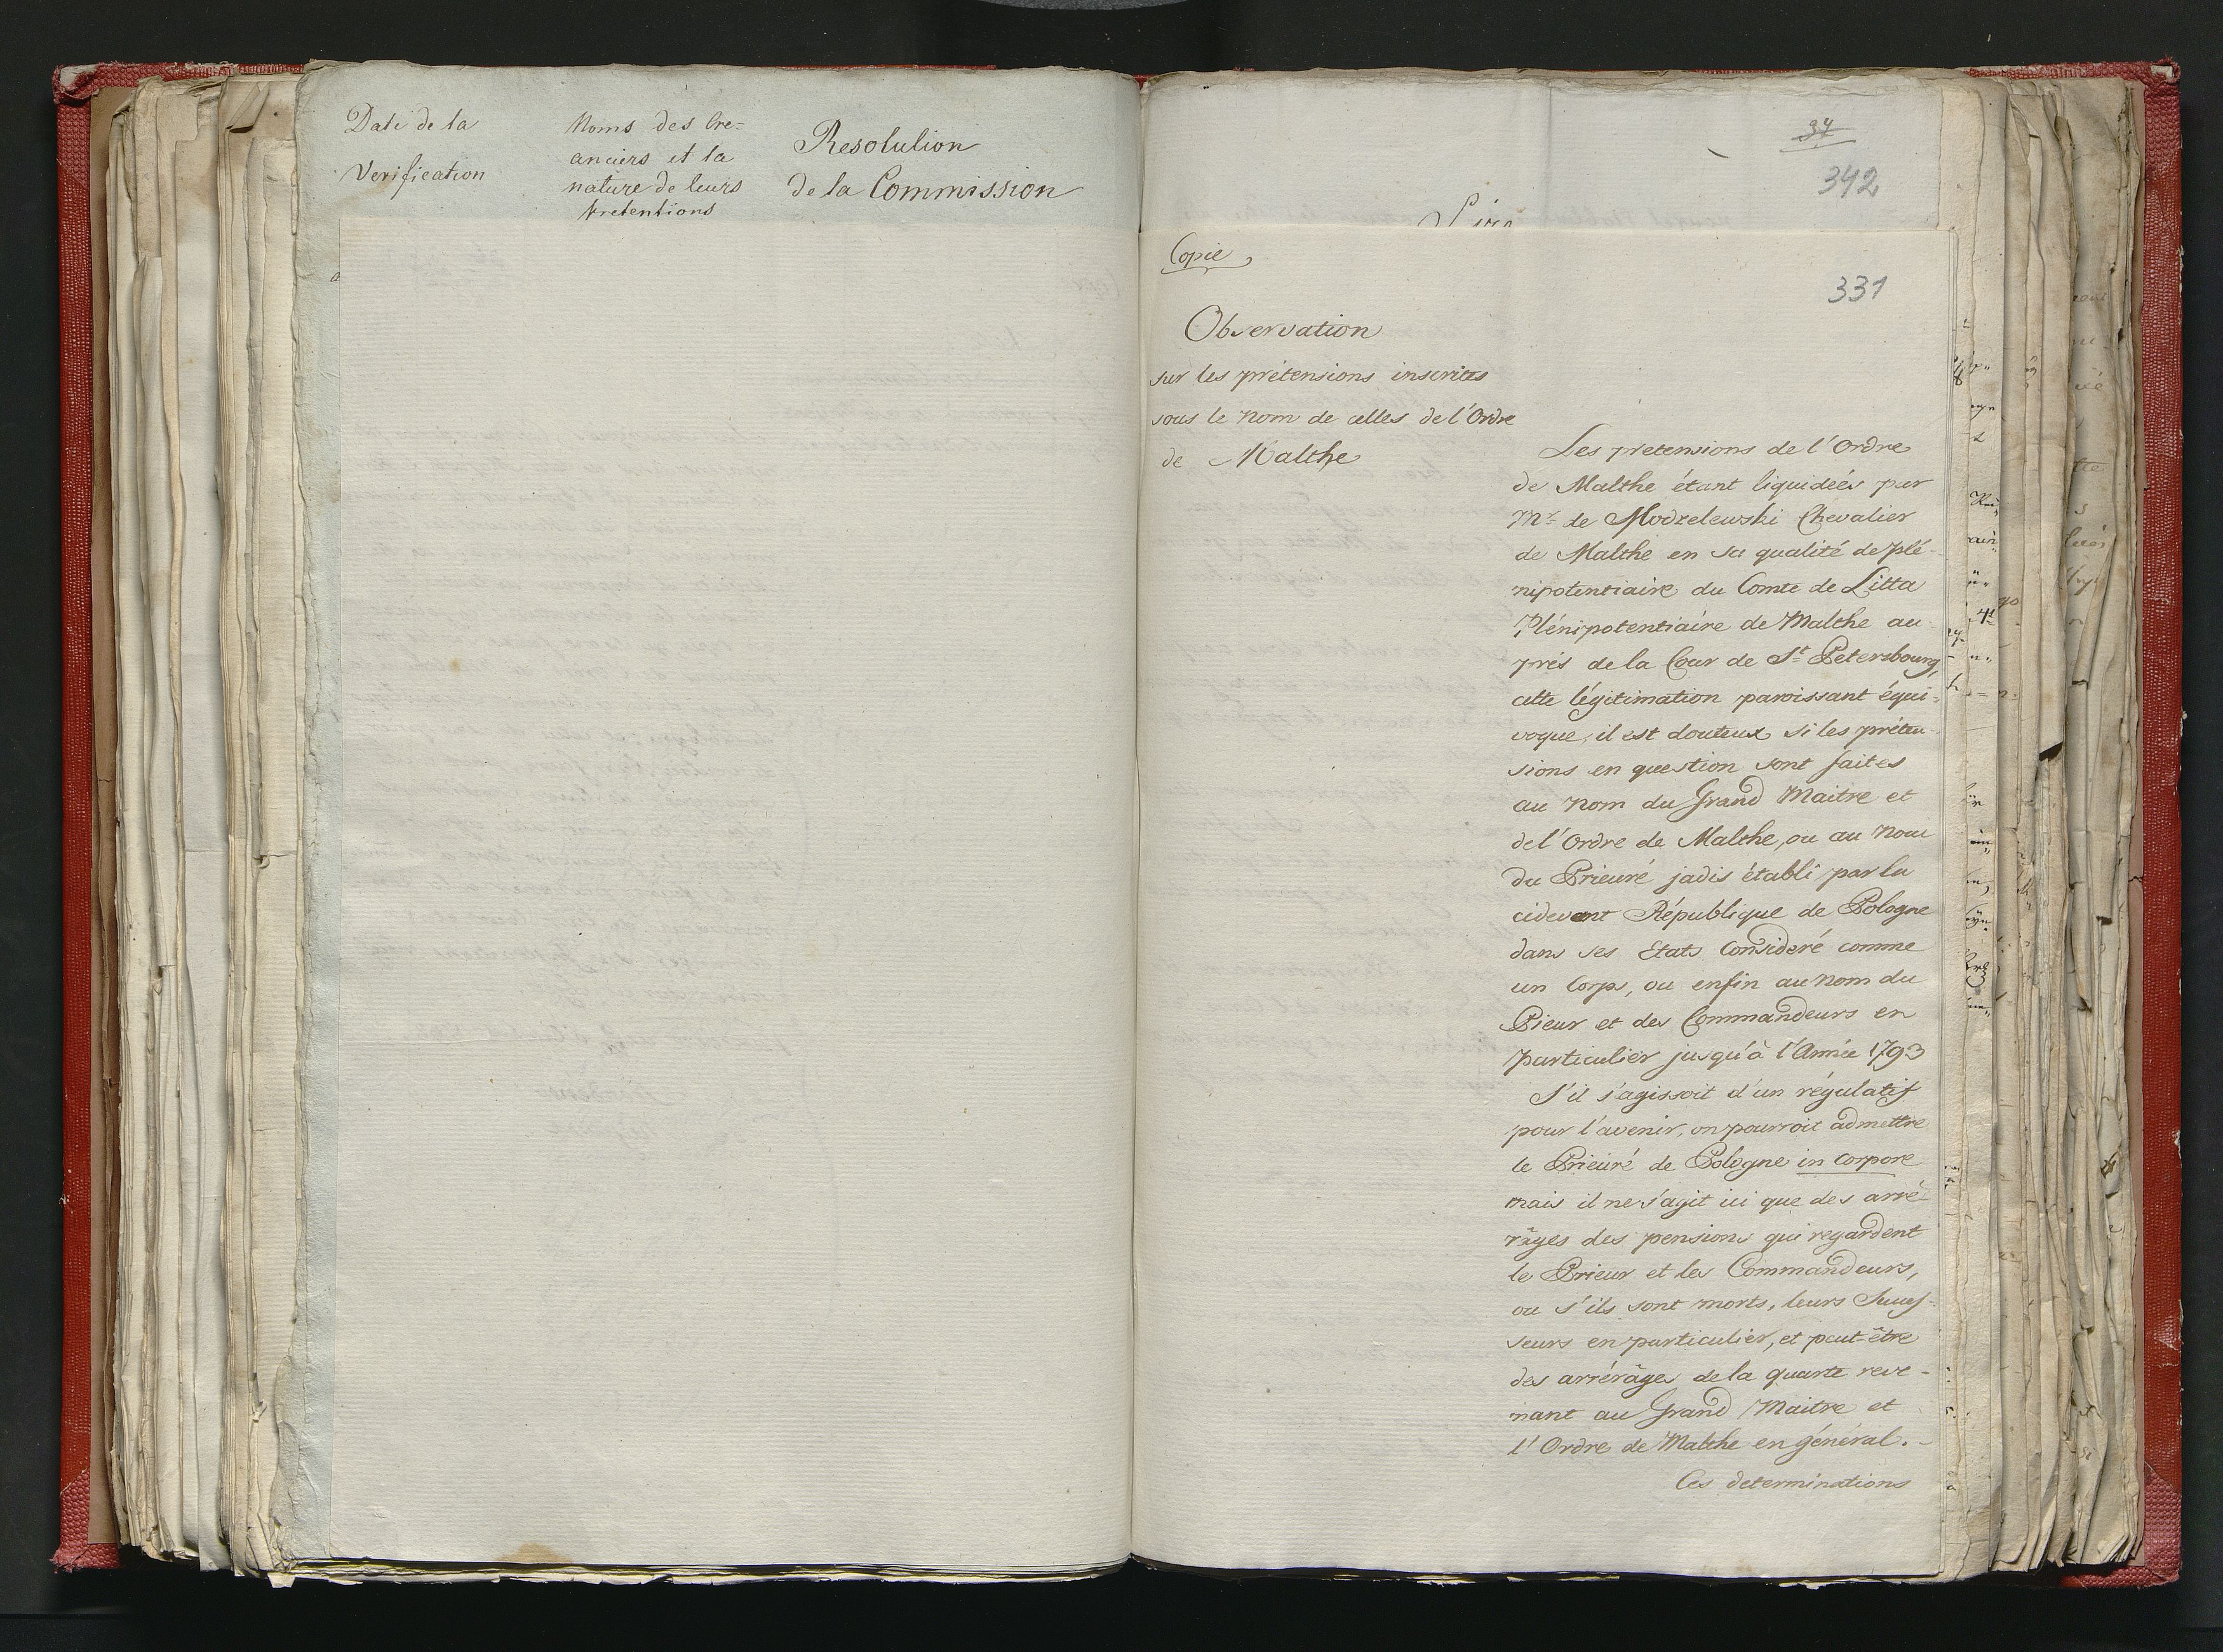 Date de la
Verification
Noms des Cre=
anciers et la
nature de leurs
pretentions
Resolution
de la Commission
34
342
Copie
331
Observation
sur les prétensions inscrites
sous le nom de celles de l'Ordre
de Malthe
Les pretensions de l'Ordre
de Malthe étant liquidées par
Mr. de Modzelewski Chevalier
de Malthe en sa qualité de plé-
nipotentiaire du Comte de Litta
Plénipotentiaire de Malthe au-
près de la Cour de St Petersbourg,
cette légitimation paroissant équi-
voque, il est douteux si les préten-
sions en question sont faites
au nom du Grand Maitre et
de l'Ordre de Malthe, ou au nom
du Prieuré jadis établi par la
cidevant République de Pologne
dans ses Etats Consideré comme
un Corps, ou enfin au nom du
Pieur et des Commandeurs en
particulier jusqu'à l'Année 1793
S'il s'agissoit d'un régulatif
pour l'avenir, on pourroit admettre
le Prieuré de Pologne in corpore
mais il ne s'agit ici que des arré-
râges des pensions qui regardent
le Prieur et les Commandeurs,
ou s'ils sont morts, leurs Succes-
seurs en particulier, et peut-être
des arrérâges de la quarte reve-
nant au Grand Maitre et
l'Ordre de Malthe en général.-
Ces determinations